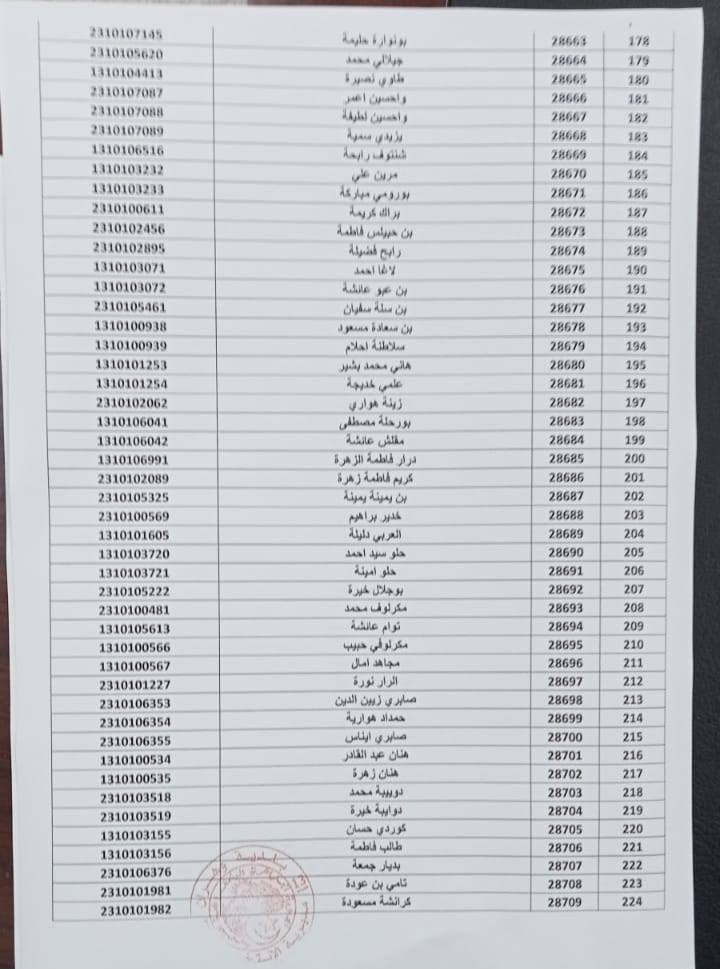 178 28663 بونوارة حليمة 2310107145
179 28664 جيلالي محمد 2310105620
180 28665 طاوي نصيرة 1310104413
181 28666 واحسين اعمر 2310107087
182 28667 واحسين لطيفة 2310107088
183 28668 يزيدي سمية 2310107089
184 28669 شنتوف رابحة 1310106516
185 28670 مرين علي 1310103232
186 28671 بورومي مباركة 1310103233
187 28672 براك كريمة 2310100611
188 28673 بن حبيلس فاطمة 2310102456
189 28674 رابح فضيلة 2310102895
190 28675 لاغا احمد 1310103071
191 28676 بن عبو عائشة 1310103072
192 28677 بن سنة سفيان 2310105461
193 28678 بن سعادة مسعود 1310100938
194 28679 سلاطنة احلام 1310100939
195 28680 هاني محمد بشير 1310101253
196 28681 علمي خديجة 1310101254
197 28682 زينة هواري 2310102062
198 28683 بورحلة مصطفى 1310106041
199 28684 مقلش عائشة 1310106042
200 28685 درار فاطمة الزهرة 1310106991
201 28686 كريم فاطمة زهرة 2310102089
202 28687 بن يمينة يمينة 2310105325
203 28688 خدير براهيم 2310100569
204 28689 العربي دليلة 1310101605
205 28690 حلو سيد احمد 1310103720
206 28691 حلو امينة 1310103721
207 28692 بوجلال خيرة 2310105222
208 28693 مكرلوف محمد 2310100481
209 28694 توام عائشة 1310105613
210 28695 مكرلوفي حبيب 1310100566
211 28696 مجاهد امال 1310100567
212 28697 الرار نورة 2310101227
213 28698 صابري زين الدين 2310106353
214 28699 حمداد هوارية 2310106354
215 28700 صابري ايناس 2310106355
216 28701 هنان عبد القادر 1310100534
217 28702 هنان زهرة 1310100535
218 28703 دويبة محمد 2310103518
219 28704 دوايبة خيرة 2310103519
220 28705 كوردي حسان 1310103155
221 28706 طالب فاطمة 1310103156
222 28707 بديار جمعة 2310106376
223 28708 تامي بن عودة 2310101981
224 28709 كرائشة مسعودة 2310101982